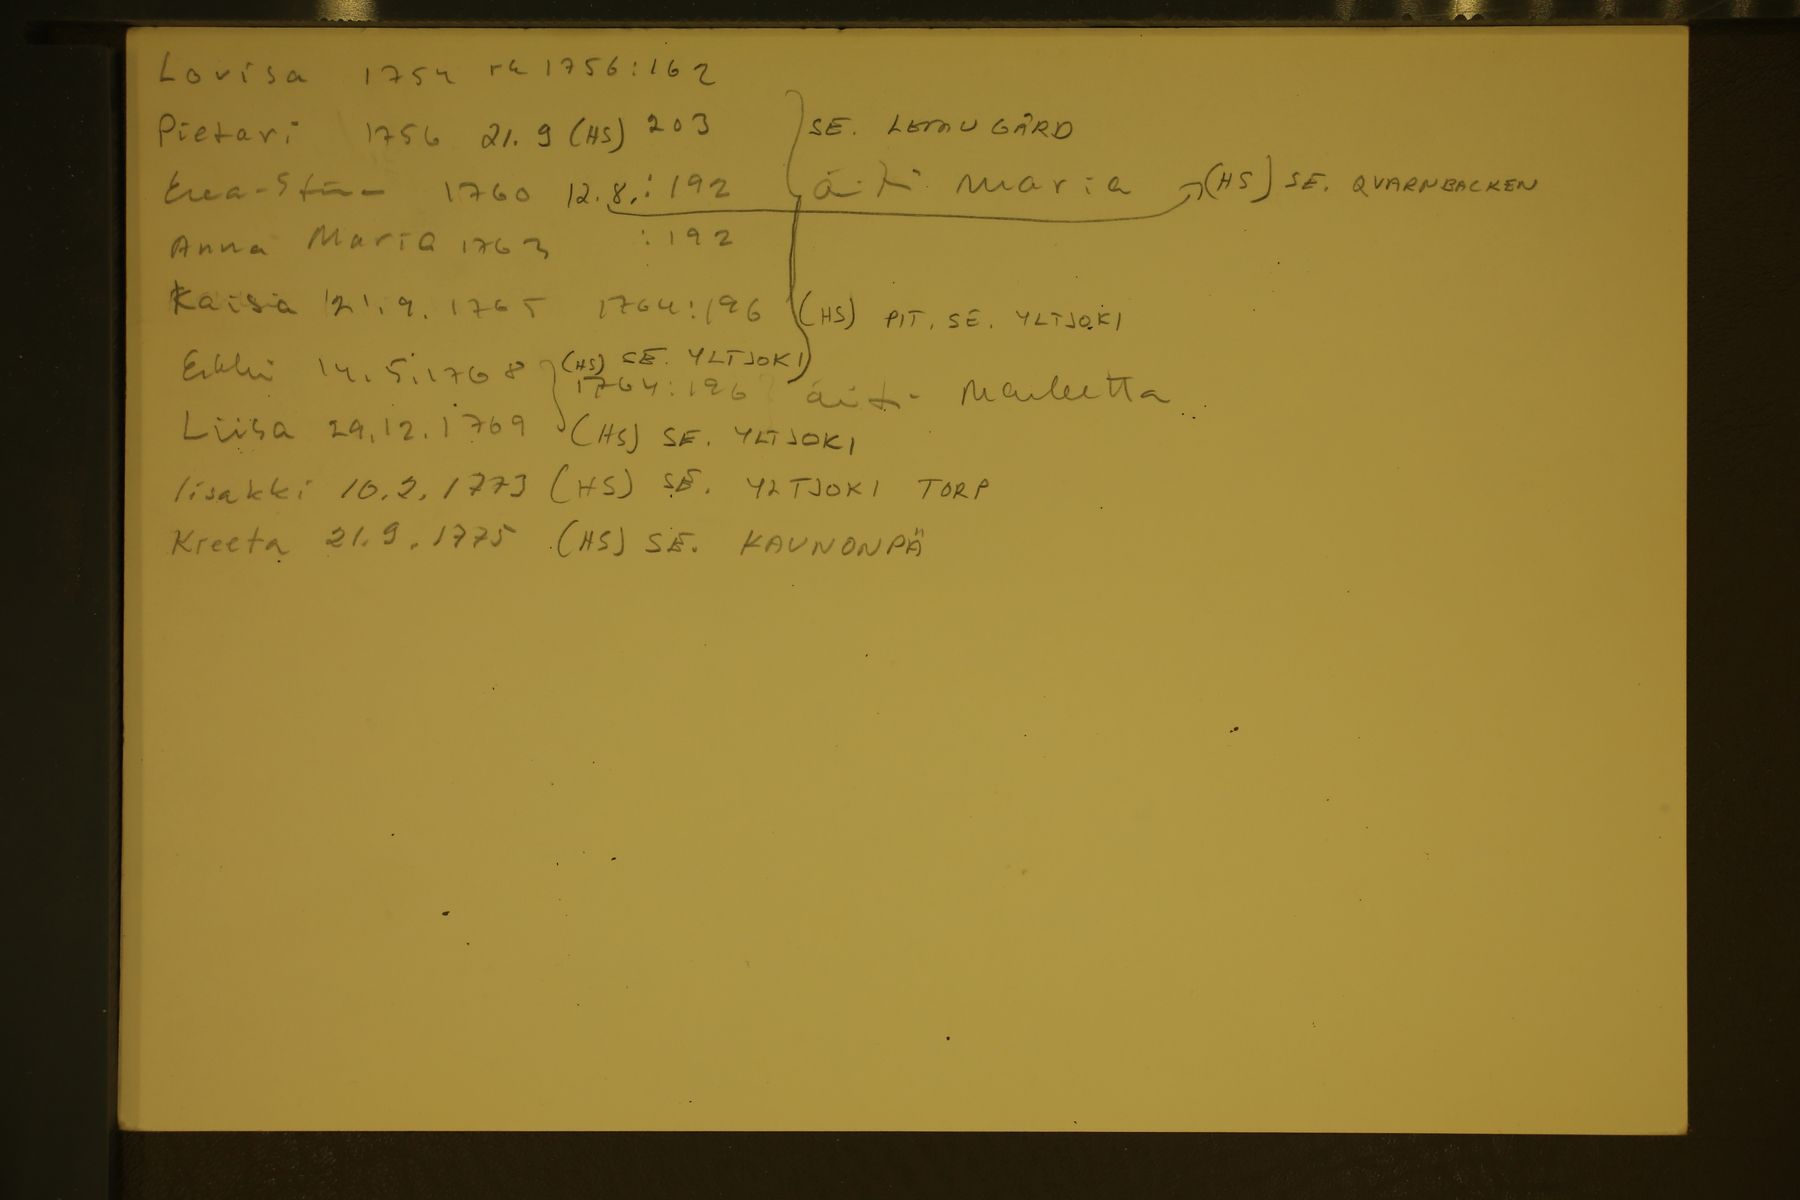 Lovisa 1754 rk 1756:162
Pietari 1756 21.9 (HS) 203 SE. LEMU GÅRD
Eeva-Stiina 1760 12.8.:192 äiti Maria (HS) SE. QVARNBACKEN
Anna Maria 1763 :192
Kaisa 21.9.1765 1764:196 (HS) PIT. SE. YLTJOKI
Erkki 14.5.1768 (HS) SE. YLTJOKI
1764:196 äiti
Liisa 29.12.1769 (HS) SE. YLTJOKI
Iisakki 10.2.1773 (HS) SE. YLTJOKI TORP
Kreeta 21.9.1775 (HS) SE. KAUNONPÄ